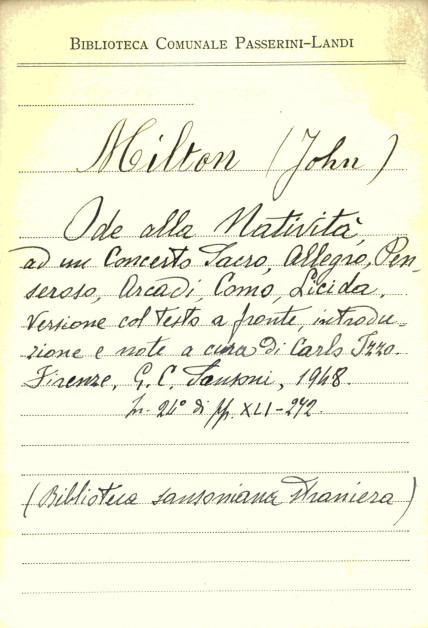 BIBLIOTECA COMUNALE PASSERINI-LANDI
Milton (John)
Ode alla Natività,
ad un Concerto Sacro, Allegro, Pen-
seroso, Arcadi, Como, Licida.
Versione col testo a fronte, introdu-
zione e note a cura di Carlo Izzo.
Firenze, G. C. Sansoni, 1948.
In-24° di pp. XLI-272.
(Biblioteca sansoniana straniera)